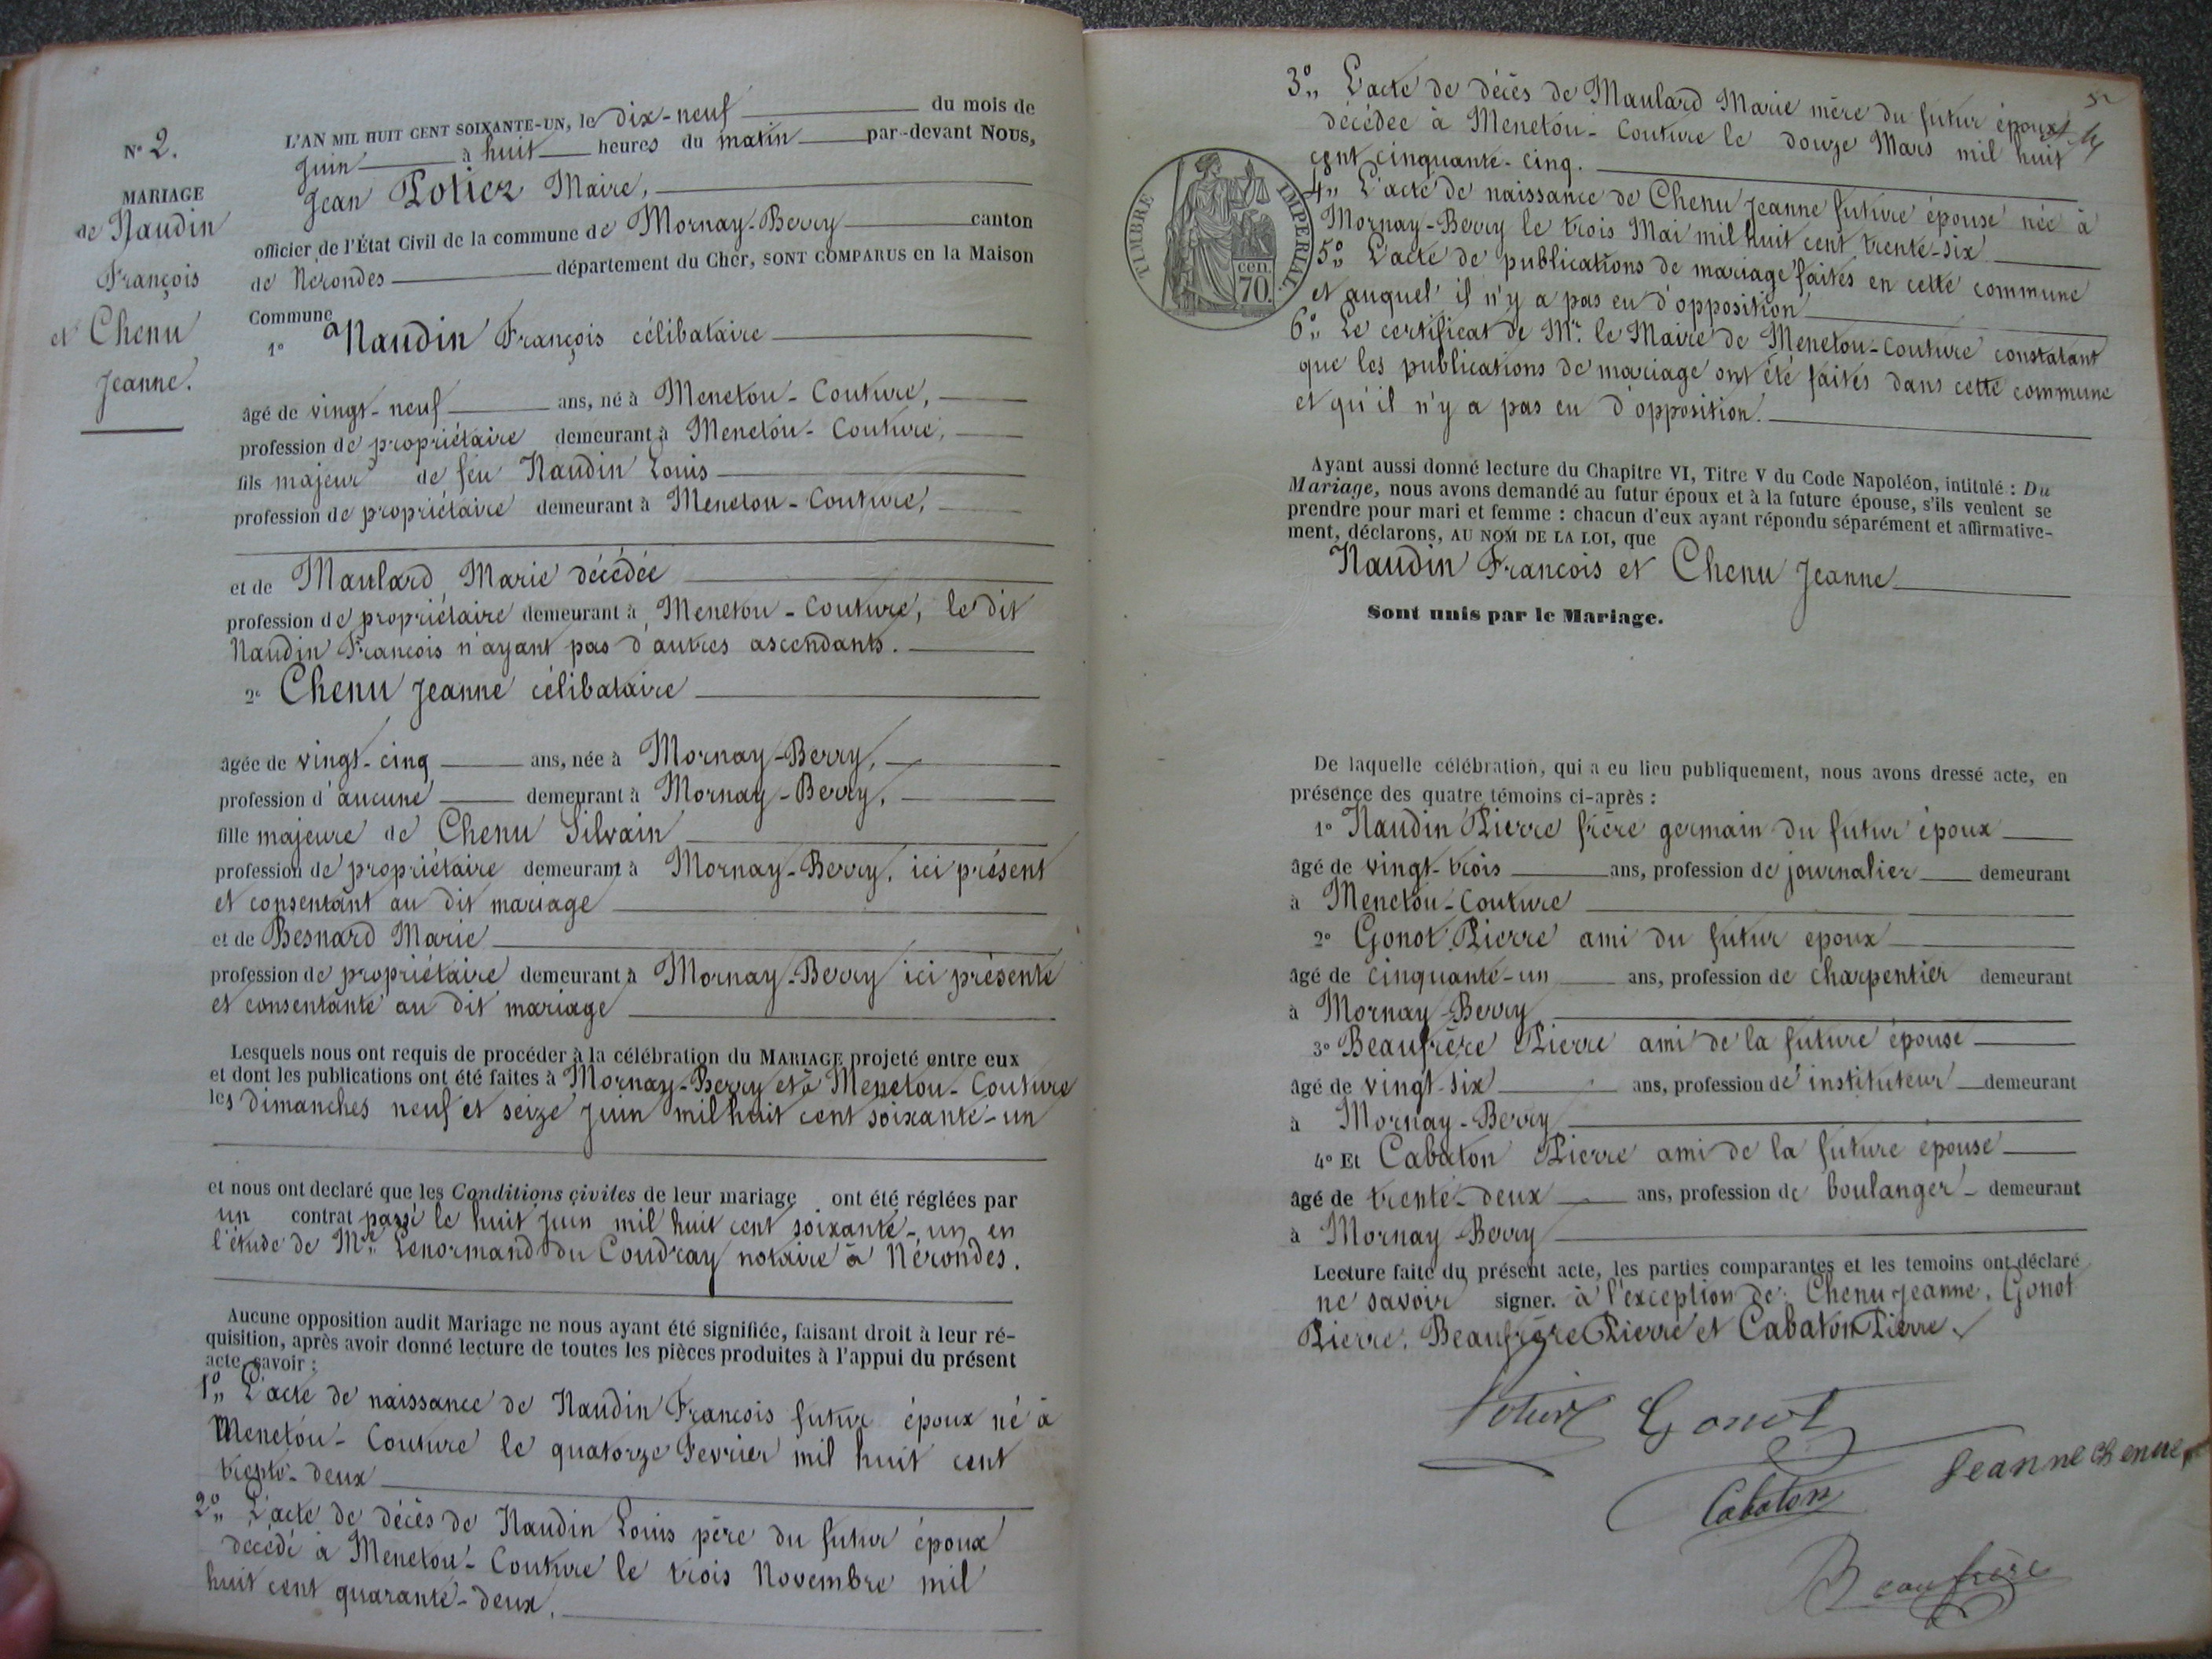 N° 2.
MARIAGE
de Naudin
François
et Chenu
Jeanne.
L'AN MIL HUIT CENT SOIXANTE-UN, le dix-neuf du mois de
Juin à huit heures du matin par-devant NOUS,
Jean Potier Maire,
officier de l'État Civil de la commune de Mornay-Berry canton
de Nérondes département du Cher, SONT COMPARUS en la Maison
Commune
1° Naudin François célibataire
âgé de vingt-neuf ans, né à Menetou-Couture,
profession de propriétaire demeurant à Menetou-Couture,
fils majeur de feu Naudin Louis
profession de propriétaire demeurant à Menetou-Couture,
et de Maulard Marie décédée
profession de propriétaire demeurant à Menetou-Couture, le dit
Naudin François n'ayant pas d'autres ascendants.
2° Chenu Jeanne célibataire
âgée de vingt-cinq ans, née à Mornay-Berry,
profession d'aucune demeurant à Mornay-Berry,
fille majeure de Chenu Silvain
profession de propriétaire demeurant à Mornay-Berry, ici présent
et consentant au dit mariage
et de Besnard Marie
profession de propriétaire demeurant à Mornay-Berry ici présente
et consentante au dit mariage
Lesquels nous ont requis de procéder à la célébration du MARIAGE projeté entre eux
et dont les publications ont été faites à Mornay-Berry et à Menetou-Couture
les dimanches neuf et seize Juin mil huit cent soixante-un
et nous ont declaré que les Conditions civiles de leur mariage ont été réglées par
un contrat passé le huit Juin mil huit cent soixante-un en
l'étude de Me. Lenormand du Coudray notaire à Nérondes.
Aucune opposition audit Mariage ne nous ayant été signifiée, faisant droit à leur ré-
quisition, après avoir donné lecture de toutes les pièces produites à l'appui du présent
acte, savoir :
1° L'acte de naissance de Naudin François futur époux né à
Menetou-Couture le quatorze Fevrier mil huit cent
trente-deux
2° L'acte de décès de Naudin Louis père du futur époux
décédé à Menetou-Couture le trois Novembre mil
huit cent quarante-deux.
3° L'acte de décès de Maulard Marie mère du futur époux
décédée à Menetou-Couture le douze Mars mil huit
cent cinquante-cinq.
4° L'acte de naissance de Chenu Jeanne future épouse née à
Mornay-Berry le trois Mai mil huit cent trente-six
5° L'acte de publications de mariage faites en cette commune
et auquel il n'y a pas eu d'opposition
6° Le certificat de Mr. le Maire de Menetou-Couture constatant
que les publications de mariage ont été faites dans cette commune
et qu'il n'y a pas eu d'opposition.
TIMBRE IMPERIAL
cen.
70.
Ayant aussi donné lecture du Chapitre VI, Titre V du Code Napoléon, intitulé : Du
Mariage, nous avons demandé au futur époux et à la future épouse, s'ils veulent se
prendre pour mari et femme : chacun d'eux ayant répondu séparément et affirmative-
ment, déclarons, AU NOM DE LA LOI, que
Naudin François et Chenu Jeanne
Sont unis par le Mariage.
De laquelle célébration, qui a eu lieu publiquement, nous avons dressé acte, en
présence des quatre témoins ci-après :
1° Naudin Pierre frère germain du futur époux
âgé de vingt-trois ans, profession de journalier demeurant
à Menetou-Couture
2° Gonot Pierre ami du futur epoux
âgé de cinquante-un ans, profession de charpentier demeurant
à Mornay-Berry
3° Beaufrère Pierre ami de la future épouse
âgé de vingt-six ans, profession d'instituteur demeurant
à Mornay-Berry
4° Et Cabaton Pierre ami de la future épouse
âgé de trente-deux ans, profession de boulanger demeurant
à Mornay-Berry
Lecture faite du présent acte, les parties comparantes et les temoins ont déclaré
ne savoir signer. à l'exception de Chenu Jeanne, Gonot
Pierre, Beaufrère Pierre et Cabaton Pierre.
Potier Gonot
Jeanne Chenu
Cabaton
Beaufrère